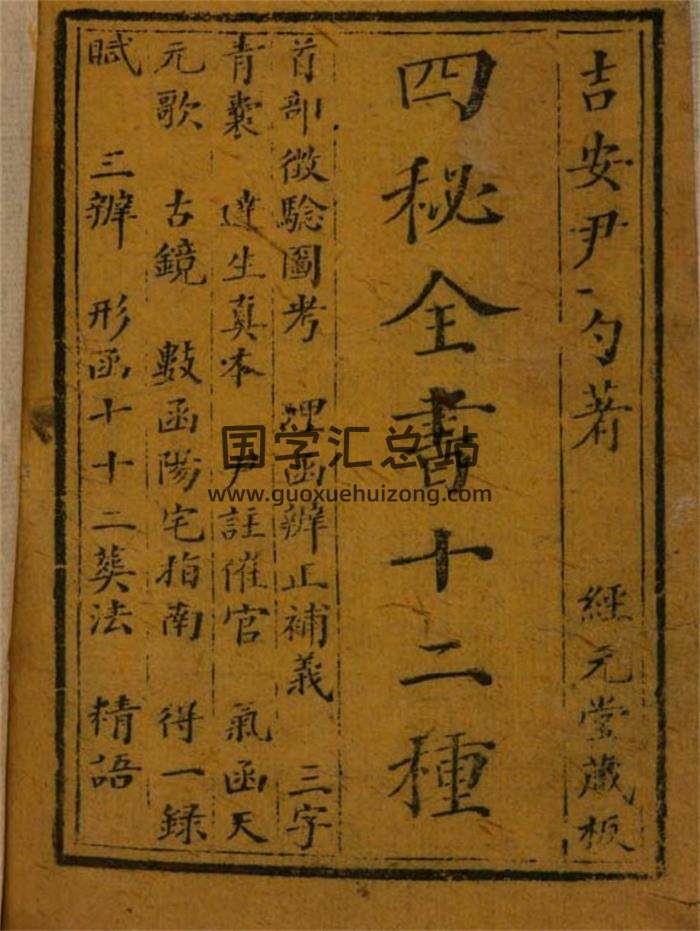 吉安尹一勺著 經元堂藏板
四秘全書十二種
首部徵騐圖考 理函辨正補義 三字
青囊 達生真本 尹註催官 氣函天
元歌 古鏡 數函陽宅指南 得一録
賦 三辨 形函十十二葬法 精語
国学汇总站
www.guoxuehuizong.com